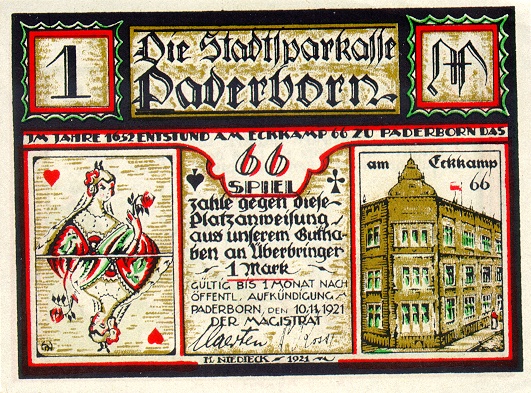 1
Die Stadtsparkasse
Paderborn
M
IM JAHRE 1652 ENTSTUND AM ECKKAMP 66 ZU PADERBORN DAS
66
SPIEL
zahle gegen diese
Platzanweisung
aus unserem Gutha-
ben an Überbringer
1 Mark
GÜLTIG BIS 1 MONAT NACH
ÖFFENTL. AUFKÜNDIGUNG
PADERBORN, DEN 10.11.1921
DER MAGISTRAT
am Eckkamp
66
M. NIEDIECK - 1921